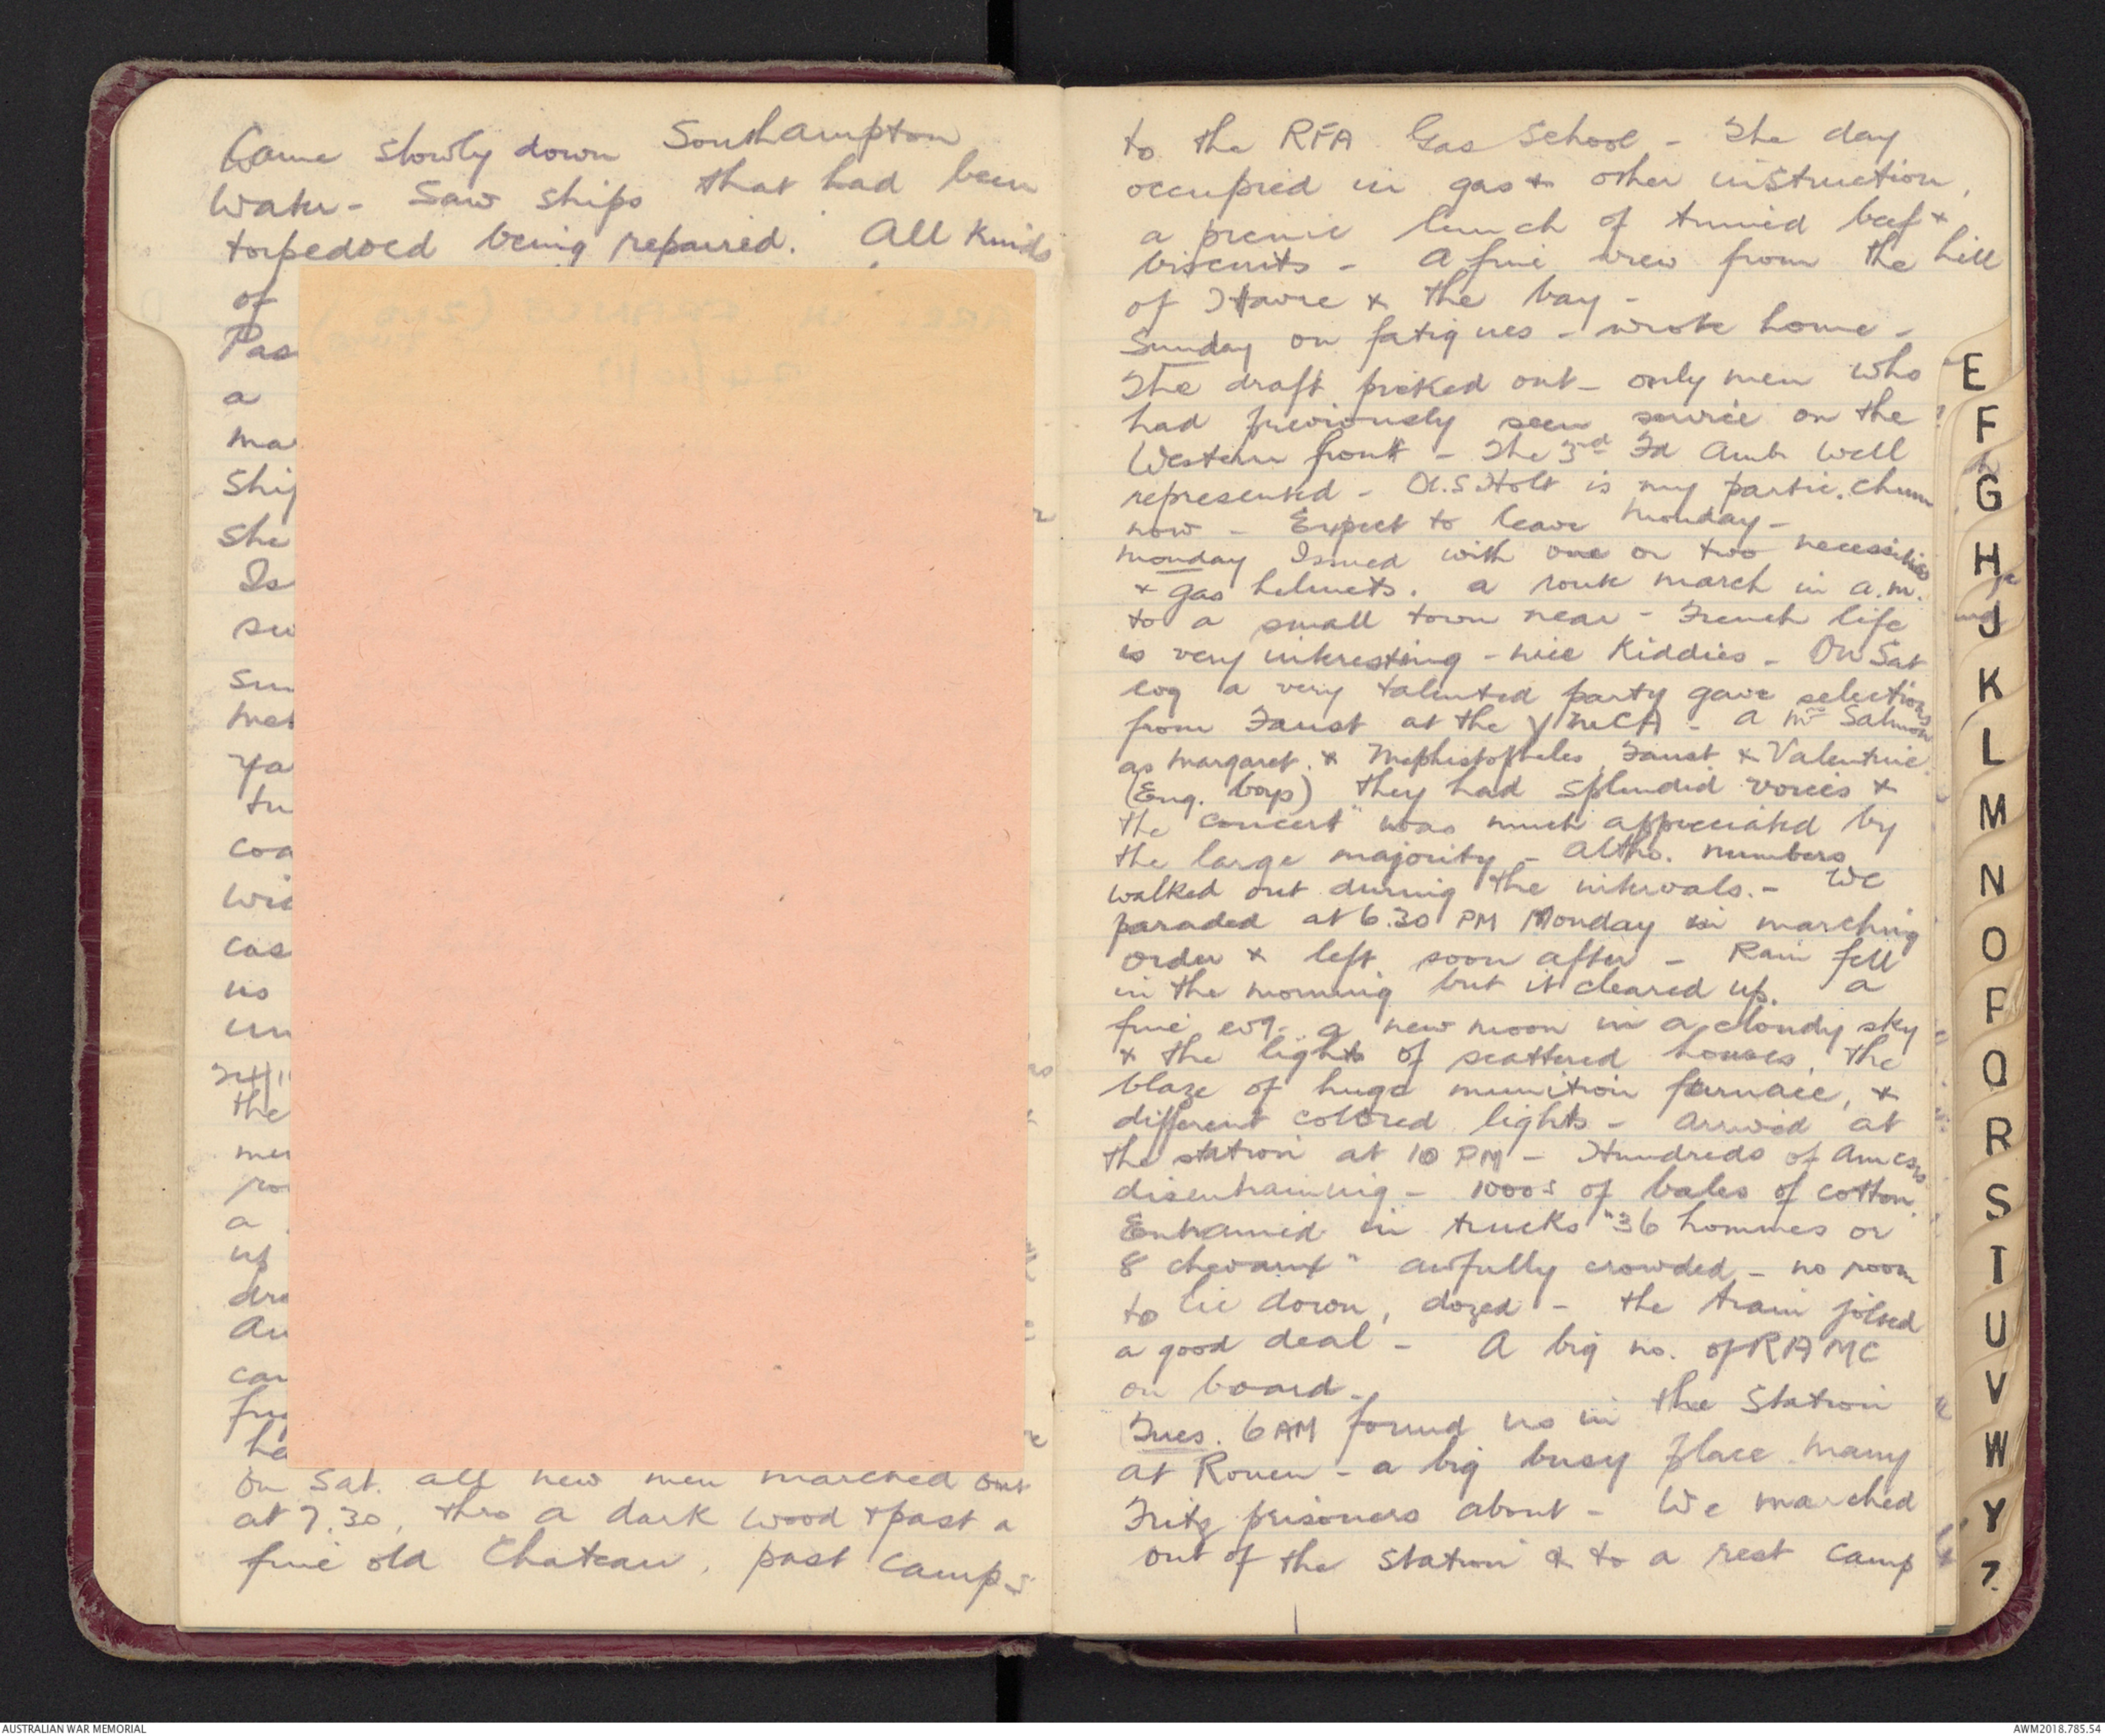 Came slowly down Southampton
Water - Saw ships that had been
torpedoed being repaired. All kinds
of
Pas
a
ma
Ship
She
Is
su
sm
met
ya
tu
coa
wid
cas
us
un
24/11
the
men
po
a
up
dre
Au
car
fu
he
On Sat. all new men marched out
at 7.30, thro a dark wood & past a
fine old Chateau, past camps
to the RFA Gas School - The day
occupied in gas & other instruction,
a picnic lunch of tinned beef &
biscuits - A fine view from the hill
of Havre & the bay -
Sunday on fatigues - wrote home -
The draft picked out - only men who
had previously seen service on the
Western front - The 3rd Fd Amb well
represented - A.S. Holt is my partic. chum
now - Expect to leave Monday -
Monday Issued with one or two necessities
& gas helmets. A route march in a.m.
to a small town near - French life
is very interesting - nice Kiddies - On Sat
evg a very talented party gave selections
from Faust at the YMCA - A Mr Salmon
as Margaret & Mephistopheles, Faust & Valentine
(Eng. boys) they had splendid voices &
the "concert" was much appreciated by
the large majority - altho. numbers
walked out during the intervals. - We
paraded at 6.30 PM Monday in marching
order & left soon after - Rain fell
in the morning but it cleared up. A
fine evg. a new moon in a cloudy sky
& the lights of scattered houses, the
blaze of huge munition furnace, &
different colored lights - Arrived at
the station at 10 PM - Hundreds of Amcsns
disentraining - 1000s of bales of cotton.
Entrained in trucks "36 hommes or
8 chevaux" awfully crowded - no room
to lie down, dozed - the train jolted
a good deal - A big no. of RAMC
on board -
Tues. 6 AM found us in the Station
at Rouen - a big busy place. Many
Fritz prisoners about - We marched
out of the station & to a rest camp
E
F
G
H
J
K
L
M
N
O
P
Q
R
S
T
U
V
W
Y
Z
AUSTRALIAN WAR MEMORIAL
AWM2018.785.54